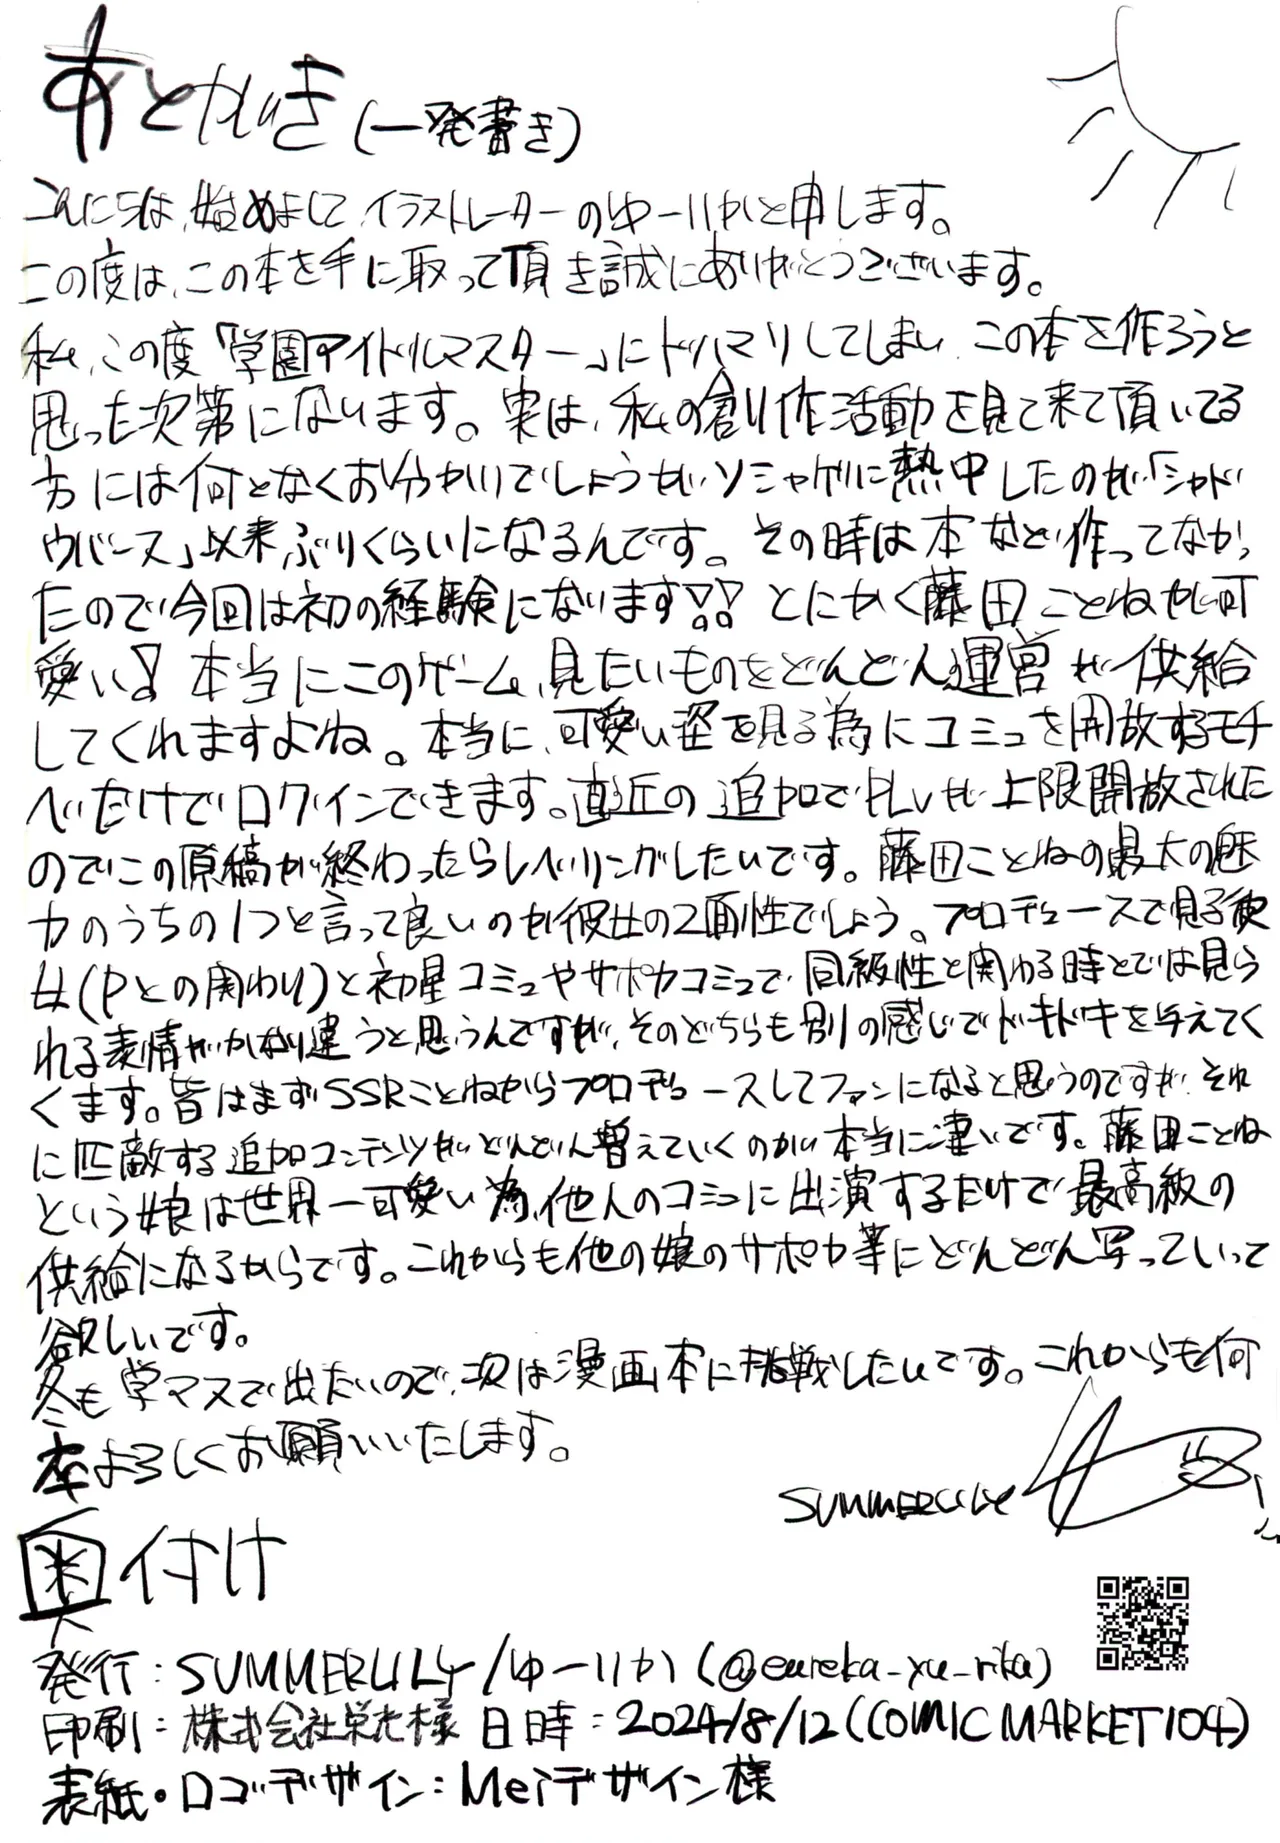 あとがき(一発書き)
こんにちは、始めまして イラストレーターのゆーりかと申します。
この度は、この本を手に取って頂き誠にありがとうございます。
私、この度「学園アイドルマスター」にドハマりしてしまい、この本を作ろうと
思った次第になります。実は、私の創作活動を見て来て頂いてる
方には何となくお分かりでしょうが ソシャゲに熱中したのが「シャド
ウバース」以来ぶりくらいになるんです。その時は本など作ってなかっ
たので今回は初の経験になります!! とにかく藤田ことねが可
愛い! 本当にこのゲーム、見たいものをどんどん運営が供給
してくれますよね。本当に、可愛い姿を見る為にコミュを開放するモチ
べだけでログインできます。直近の追加でPLvが上限開放された
のでこの原稿が終わったらレベリングしたいです。藤田ことねの最大の魅
力のうちの1つと言って良いのが彼女の2面性でしょう。プロデュースで見る彼
女(Pとの関わり)と初星コミュやサポカコミュで同級性と関わる時とでは見ら
れる表情がかなり違うと思うんですが、そのどちらも別の感じでドキドキを与えてく
くます。皆はまずSSRことねからプロデュースしてファンになると思うのですが、それ
に匹敵する追加コンテンツがどんどん増えていくのが本当に凄いです。藤田ことね
という娘は世界一可愛い為、他人のコミュに出演するだけで最高級の
供給になるからです。これからも他の娘のサポカ等にどんどん写っていって
欲しいです。
冬も学マスで出たいので、次は漫画本に挑戦したいです。これからも何
卒よろしくお願いいたします。
SUMMERLILY
奥付け
発行:SUMMERLILY/ゆーりか(@eureka_yu_rika)
印刷:株式会社栄光様 日時:2024/8/12(COMIC MARKET104)
表紙・ロゴデザイン:Meiデザイン様